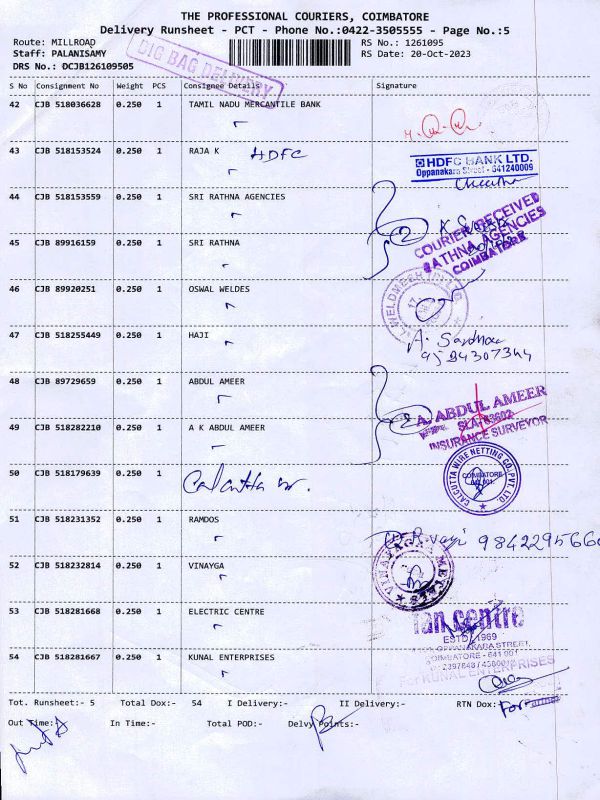 THE PROFESSIONAL COURIERS, COIMBATORE
Delivery Runsheet - PCT - Phone No.:0422-3505555 - Page No.:5
Route: MILLROAD RS No.: 1261095
Staff: PALANISAMY RS Date: 20-Oct-2023
DRS No.: DCJB126109505
DIG BAG DELIVERY
S No Consignment No Weight PCS Consignee Details Signature
42 CJB 518036628 0.250 1 TAMIL NADU MERCANTILE BANK
43 CJB 518153524 0.250 1 RAJA K HDFC
HDFC BANK LTD.
Oppanakara Street - 641240009
44 CJB 518153559 0.250 1 SRI RATHNA AGENCIES
COURIER RECEIVED
RATHNA AGENCIES
COIMBATORE
45 CJB 89916159 0.250 1 SRI RATHNA
46 CJB 89920251 0.250 1 OSWAL WELDES
47 CJB 518255449 0.250 1 HAJI
48 CJB 89729659 0.250 1 ABDUL AMEER
A. ABDUL AMEER
INSURANCE SURVEYOR
49 CJB 518282210 0.250 1 A K ABDUL AMEER
50 CJB 518179639 0.250 1 Calcutta
CALCUTTA WIRE NETTING CO. PVT. LTD.
COIMBATORE
641 001
51 CJB 518231352 0.250 1 RAMDOS
52 CJB 518232814 0.250 1 VINAYGA
VINAYAGA METALS
53 CJB 518281668 0.250 1 ELECTRIC CENTRE
fan centre
ESTD 1969
OPPANAKARA STREET,
COIMBATORE - 641 001
54 CJB 518281667 0.250 1 KUNAL ENTERPRISES
For KUNAL ENTERPRISES
Tot. Runsheet:- 5 Total Dox:- 54 I Delivery:- II Delivery:- RTN Dox:-
Out Time:- In Time:- Total POD:- Delvy Points:-